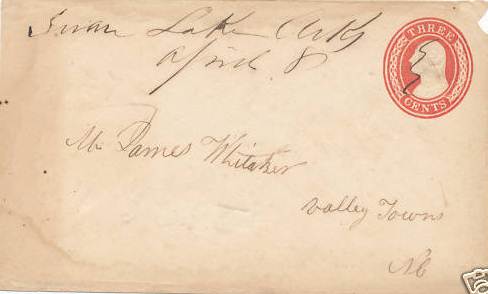 Swan Lake Arks
April 8
THREE
CENTS
Mr James Whitaker
Valley Towns
NC